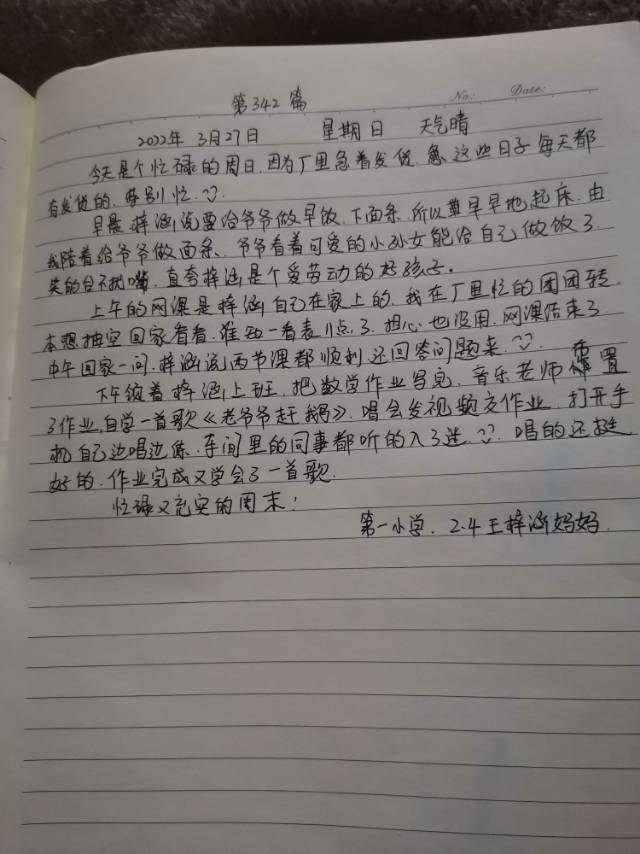 第342篇
No:
Date:
2022年 3月27日 星期日 天气晴
今天是个忙碌的周日.因为厂里急着发货.急.这些日子每天都
有发货的.特别忙.
早晨梓涵说要给爷爷做早饭.下面条.所以早早地起床.由
我陪着给爷爷做面条.爷爷看着可爱的小孙女能给自己做饭了.
笑的合不拢嘴.直夸梓涵是个爱劳动的好孩子.
上午的网课是梓涵自己在家上的.我在厂里忙的团团转.
本想抽空回家看看.谁知一看表11点了.担心也没用.网课结束了.
中午回家一问.梓涵说两节课都顺利还回答问题来.
下午领着梓涵上班.把数学作业写完.音乐老师布置
了作业.自学一首歌《老爷爷赶鹅》.唱会发视频交作业.打开手
机自己边唱边练.车间里的同事都听的入了迷.唱的还挺
好的.作业完成又学会了一首歌.
忙碌又充实的周末!
第一小学.2.4王梓涵妈妈.